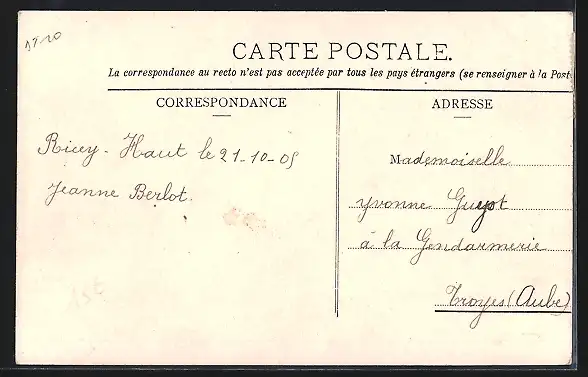 CARTE POSTALE.
La correspondance au recto n'est pas acceptée par tous les pays étrangers (se renseigner à la Post
CORRESPONDANCE
Ricey-Haut le 21-10-05
Jeanne Berlot.
ADRESSE
Mademoiselle
Yvonne Guyot
à la Gendarmerie
Troyes (Aube)